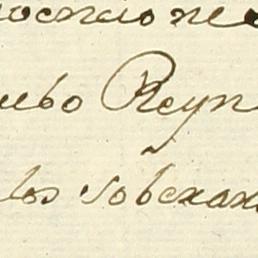 ocacione
uebo Reyn
los soberan